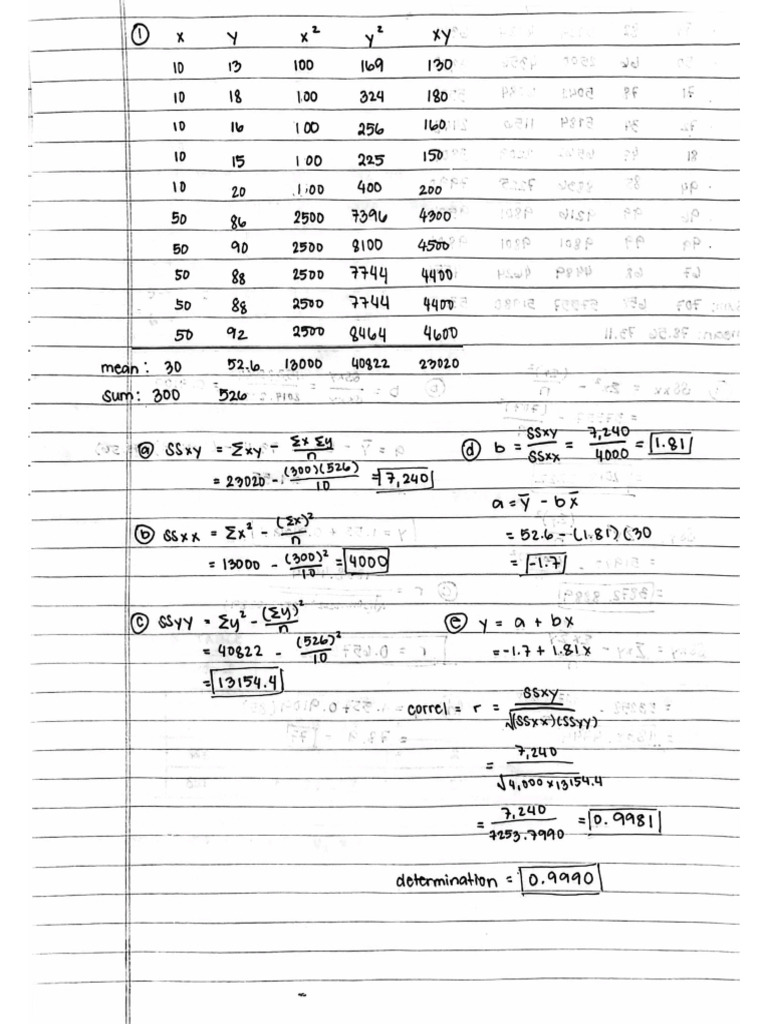 ① x y x² y² xy
10 13 100 169 130
10 18 100 324 180
10 16 100 256 160
10 15 100 225 150
10 20 100 400 200
50 86 2500 7396 4300
50 90 2500 8100 4500
50 88 2500 7744 4400
50 88 2500 7744 4400
50 92 2500 8464 4600
mean: 30 52.6 13000 40822 23020
sum: 300 526
ⓐ SSxy = Σxy - Σx Σy / n
= 23020 - (300)(526) / 10 = 7,240
ⓑ SSxx = Σx² - (Σx)² / n
= 13000 - (300)² / 10 = 4000
ⓒ SSyy = Σy² - (Σy)² / n
= 40822 - (526)² / 10
= 13154.4
ⓓ b = SSxy / SSxx = 7,240 / 4000 = 1.81
a = y̅ - b x̅
= 52.6 - (1.81)(30
= -1.7
ⓔ y = a + bx
= -1.7 + 1.81x
correl = r = SSxy / √(SSxx)(SSyy)
= 7,240 / √4,000 x 13154.4
= 7,240 / 7253.7990 = 0.9981
determination = 0.9990